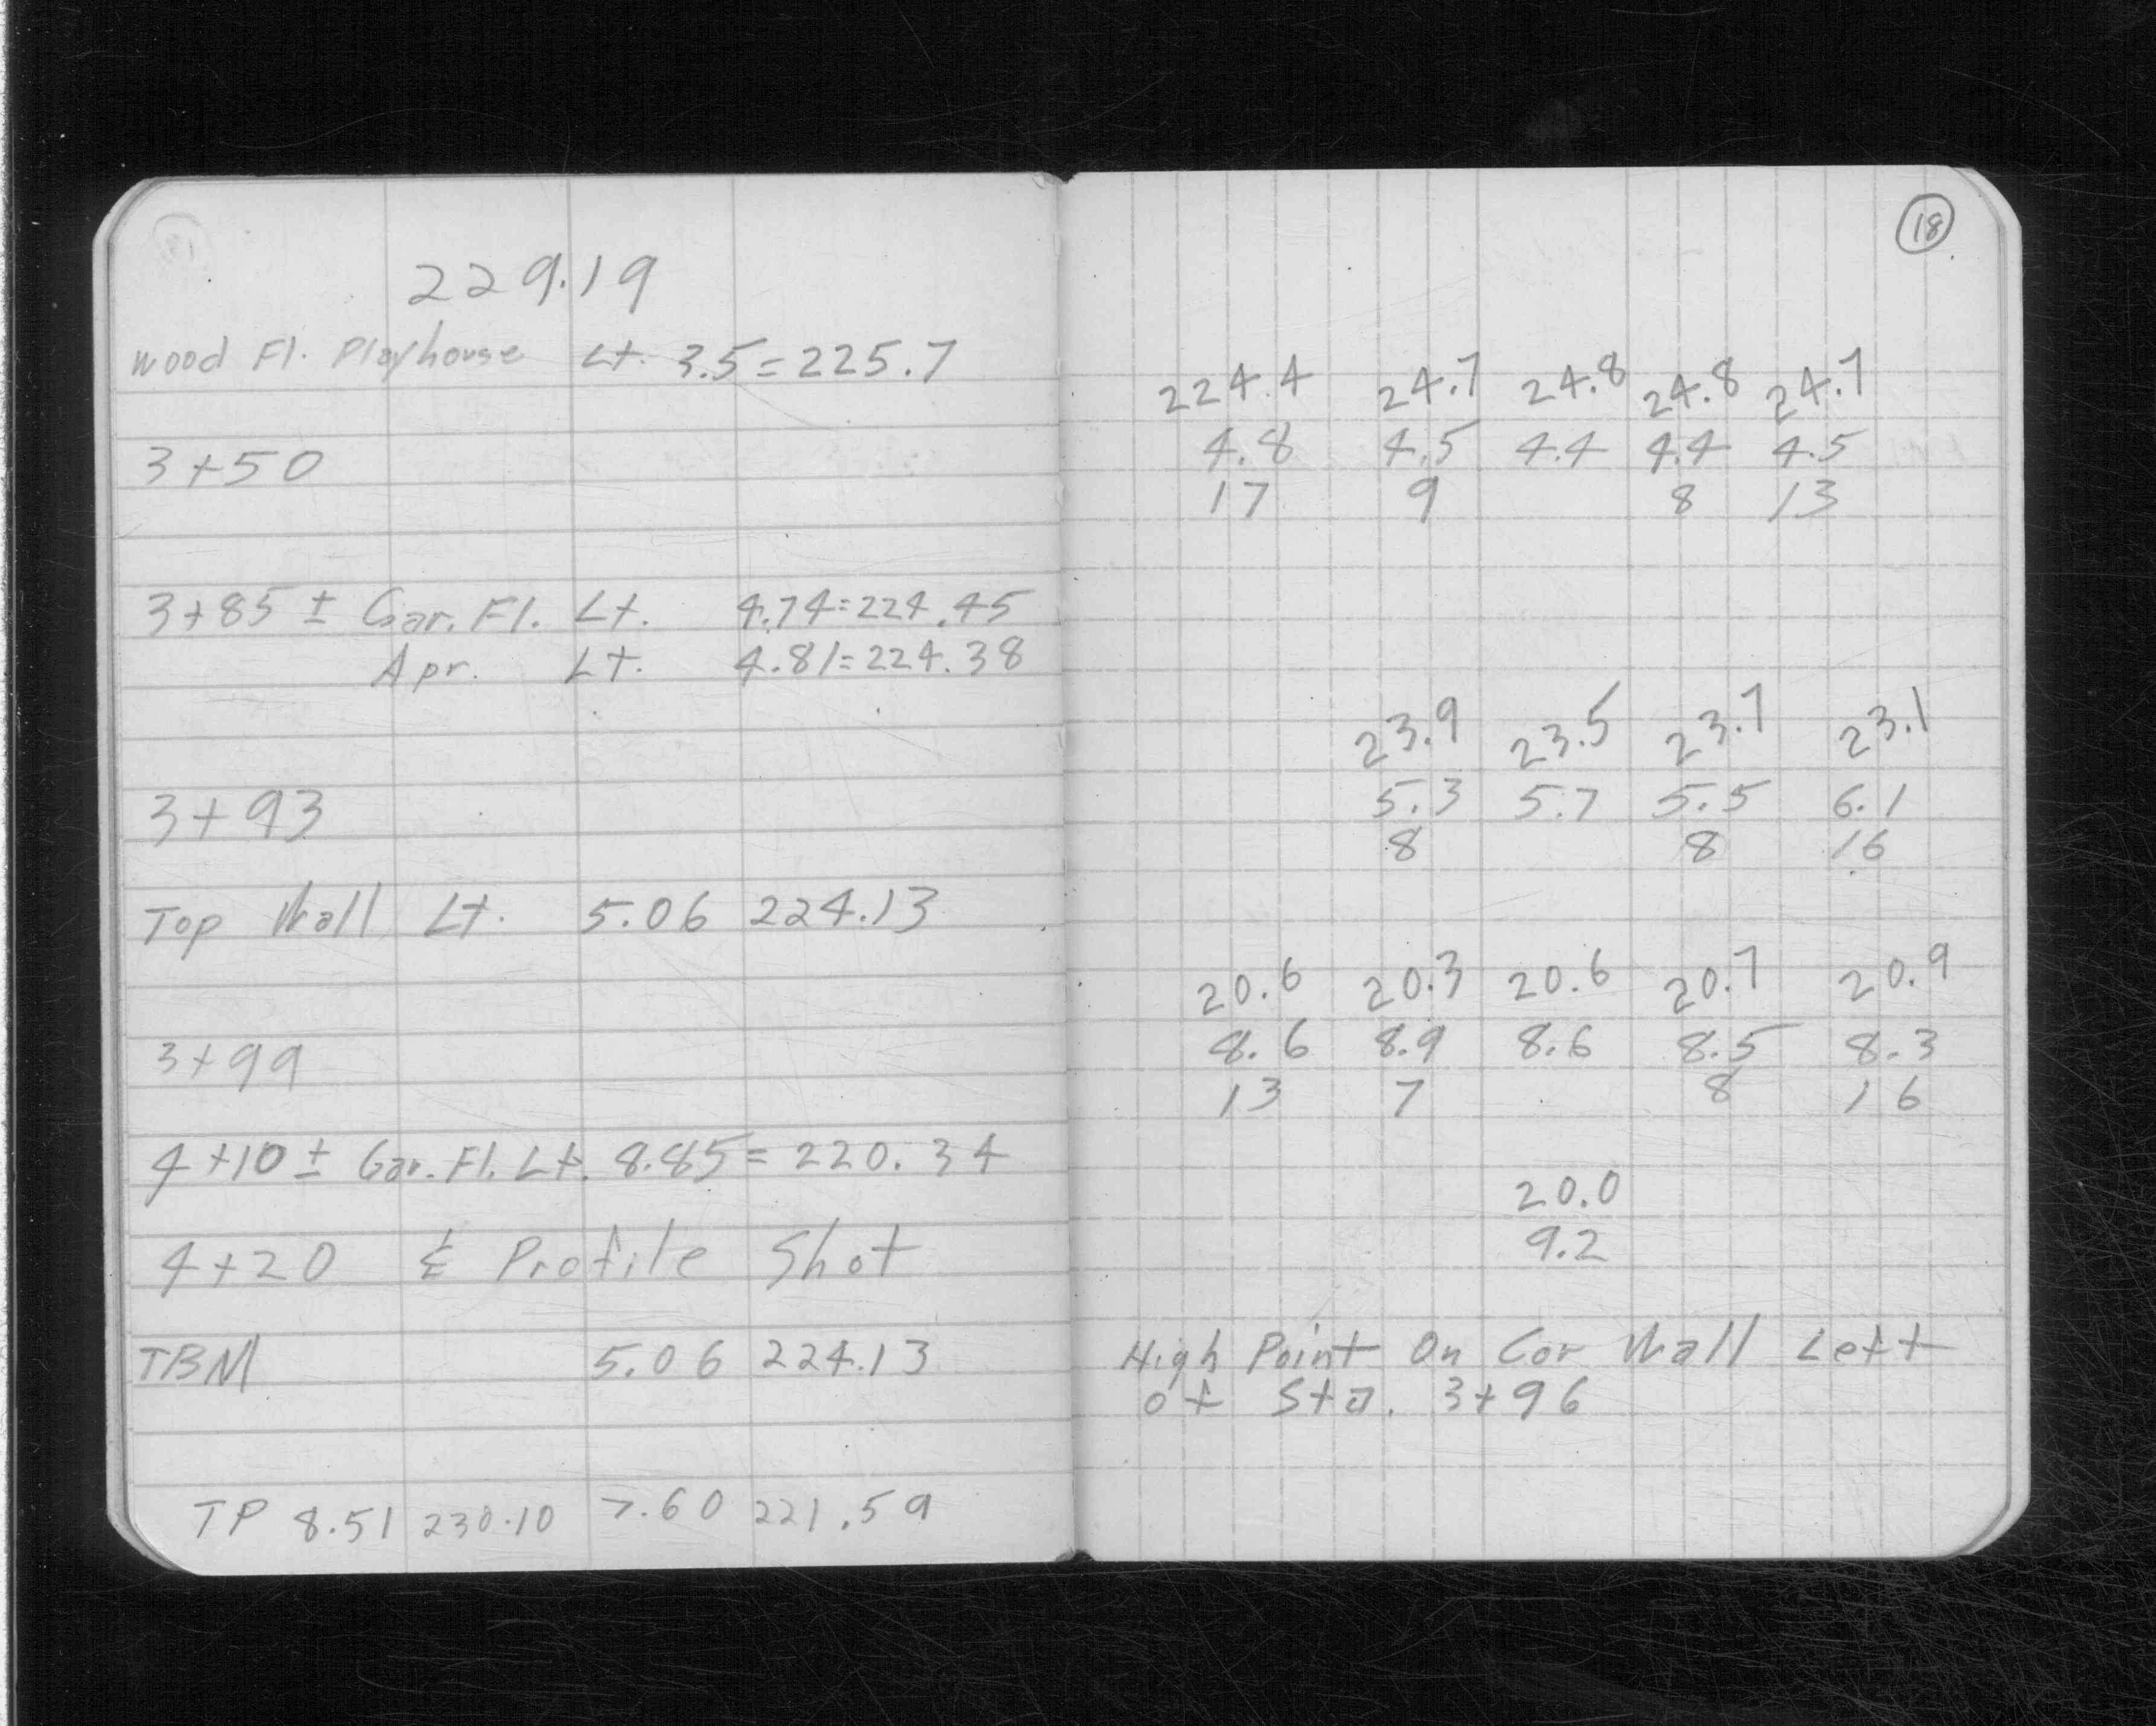 229.19
Wood Fl. Playhouse Lt. 3.5=225.7
3+50
3+85 ± Gar. Fl. Lt. 4.74=224.45
Apr. Lt. 4.81=224.38
3+93
Top Wall Lt. 5.06 224.13
3+99
4+10 ± Gar. Fl. Lt. 8.85=220.34
4+20 ℄ Profile Shot
TBM 5.06 224.13
TP 8.51 230.10 7.60 221.59
18
224.4 24.7 24.8 24.8 24.7
4.8 4.5 4.4 4.4 4.5
17 9 8 13
23.9 23.5 23.7 23.1
5.3 5.7 5.5 6.1
8 8 16
20.6 20.3 20.6 20.7 20.9
8.6 8.9 8.6 8.5 8.3
13 7 8 16
20.0
9.2
High Point On Cor Wall Left
of Sta. 3+96